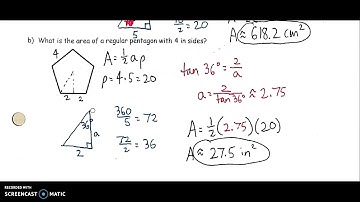 5
18/2 = 20
A ≈ 618.2 cm²
b) What is the area of a regular pentagon with 4 in sides?
4
2 2
A = 1/2 ap
p = 4·5 = 20
tan 36° = 2/a
a = 2/tan 36° ≈ 2.75
36°
a
2
360/5 = 72
72/2 = 36
A = 1/2 (2.75)(20)
A ≈ 27.5 in²
RECORDED WITH
SCREENCAST-O-MATIC